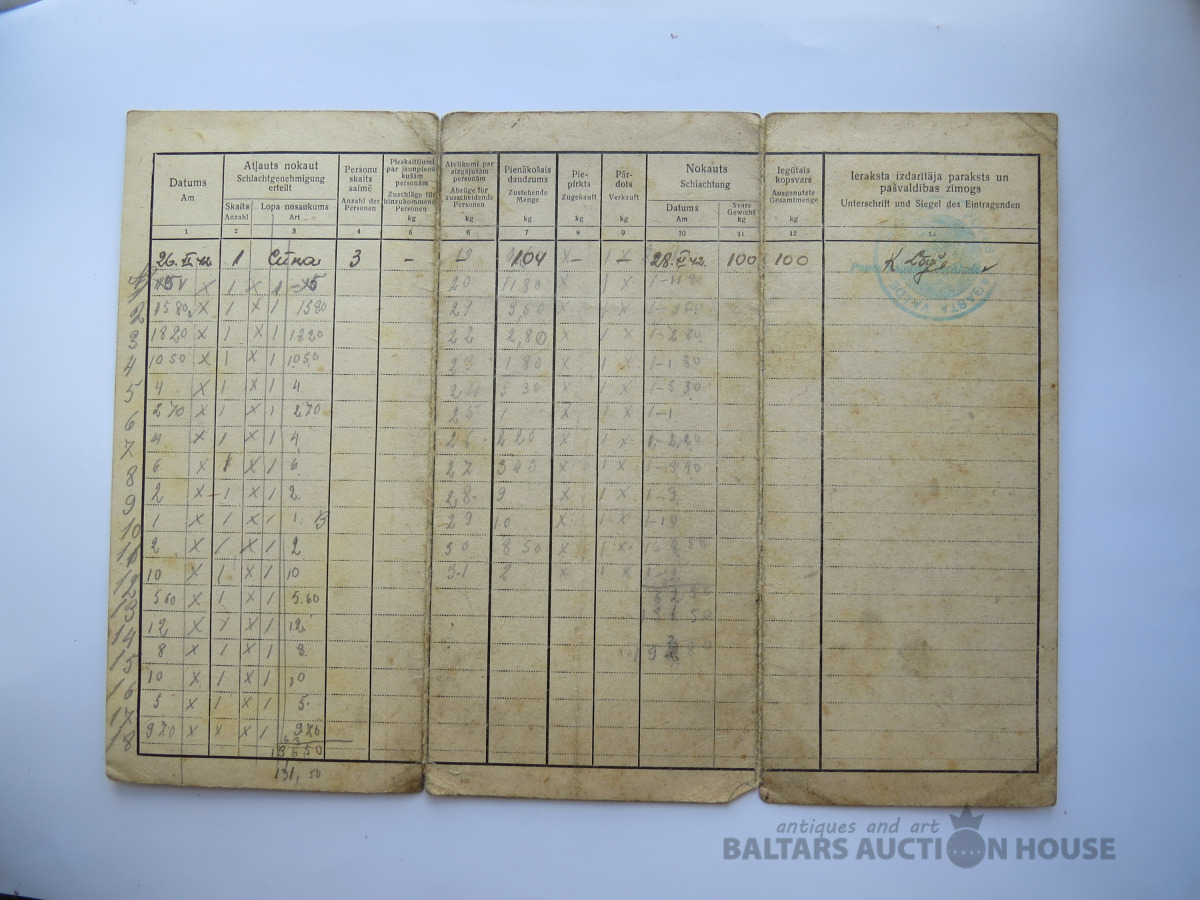 Datums
Am
1
Atļauts nokaut
Schlachtgenehmigung
erteilt
Skaits
Anzahl
2
Lopa nosaukums
Art
3
Personu
skaits
saimē
Anzahl der
Personen
4
Pieskaitījumi
par jaunpienā-
kušām
personām
Zuschläge für
hinzukommende
Personen
kg
5
Atvilkumi par
aizgājušām
personām
Abzüge für
ausscheidende
Personen
kg
6
Pienākošais
daudzums
Zustehende
Menge
kg
7
Pie-
pirkts
Zugekauft
kg
8
Pār-
dots
Verkauft
kg
9
Nokauts
Schlachtung
Datums
Am
10
Svars
Gewicht
kg
11
Iegūtais
kopsvars
Ausgenutzte
Gesamtmenge
kg
12
Ieraksta izdarītāja paraksts un
pašvaldības zīmogs
Unterschrift und Siegel des Eintragenden
26. II 42. 1 Cūka 3 – – 104 – – 28. II 42. 100 100
x 1 x 1 20 1180 x 1 x
2 1580 x 1 x 1 1580 21 x 1 x
3 1820 x 1 x 1 1820 22 2,80 x 1 x 1-280
4 1050 x 1 x 1 1050 23 180 x 1 x 1-180
5 4 x 1 x 1 4 24 530 x 1 x 1-530
6 270 x 1 x 1 270 25 1 x 1 x 1-1
7 4 x 1 x 1 4 26 220 x 1 x 1-2,20
8 6 x 1 x 1 6 27 340 x 1 x 1-340
9 2 x 1 x 1 2 28 9 x 1 x 1-9
10 1 x 1 x 1 1 29 10 x 1 x 1-10
11 2 x 1 x 1 2 30 850 x 1 x
12 10 x 1 x 1 10 31 2 x 1 x
13 560 x 1 x 1 5.60
14 12 x 1 x 1 12 131 50
15 8 x 1 x 1 8
16 10 x 1 x 1 10
17 5 x 1 x 1 5
18 970 x x x 1 970
131,50
antiques and art
BALTARS AUCTION HOUSE